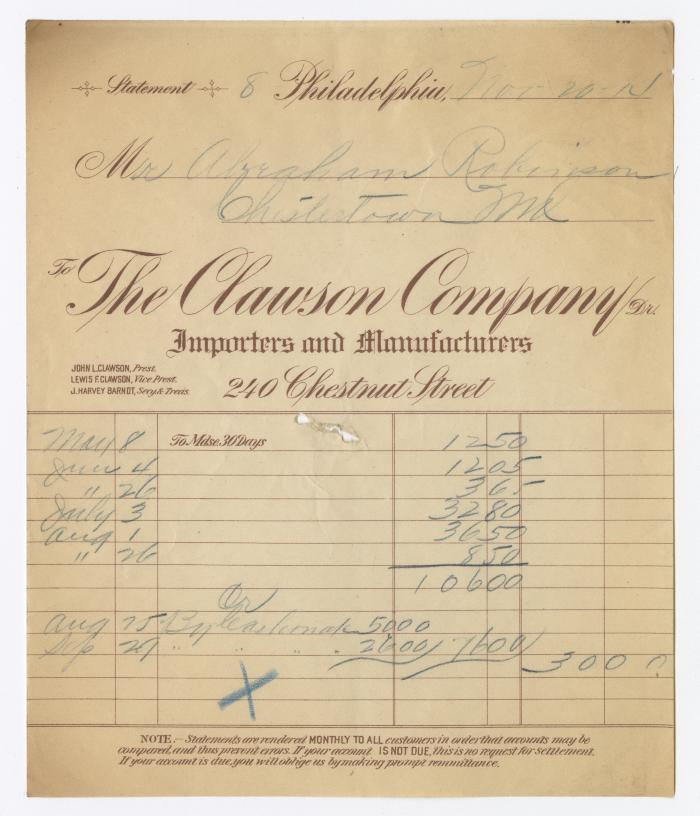 Statement 8 Philadelphia, Nov 20-14
Mr Abraham Robinson
Chestertown Md
To The Clawson Company Dr.
Importers and Manufacturers
JOHN L. CLAWSON, Prest.
LEWIS F. CLAWSON, Vice Prest.
J. HARVEY BARNDT, Secy & Treas.
240 Chestnut Street
May 8 To Mdse. 30 Days 12 50
June 4 12 05
" 26 3 65
July 3 32 80
Aug 1 36 50
" 26 8 50
106 00
Cr
Aug 25 By Cash on a/c 50 00
Sep 29 " " " " 26 00 76 00
30 00
NOTE.- Statements are rendered MONTHLY TO ALL customers in order that accounts may be
compared, and thus prevent errors. If your account IS NOT DUE, this is no request for settlement.
If your account is due, you will oblige us by making prompt remmittance.